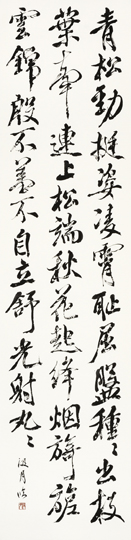 青松勁挺姿凌霄恥屈盤種〻出枝
葉牽連上松端秋花起絳烟旖旎
雲錦殷不羞不自立舒光射丸〻